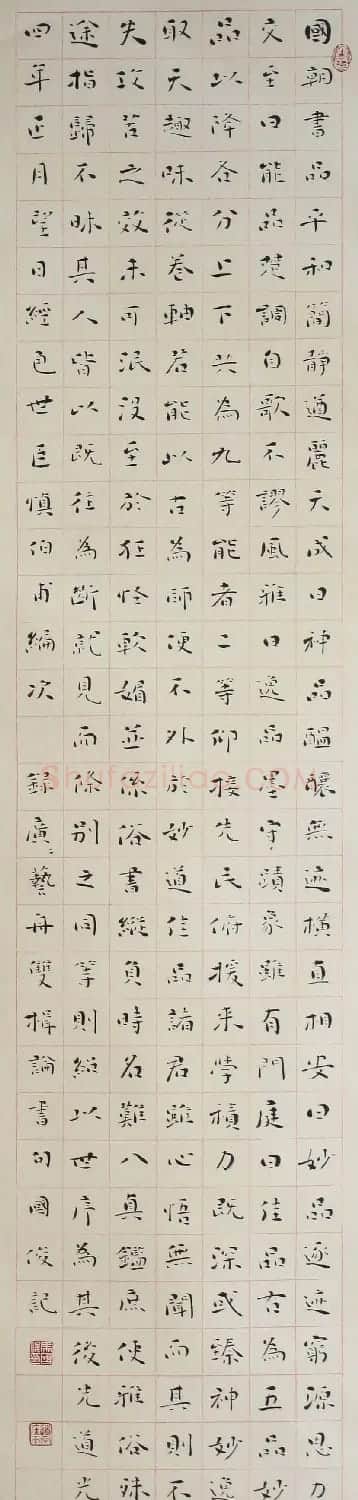 國朝書品平和簡靜遒麗天成曰神品醞釀無迹橫直相安曰妙品逐迹窮源思力
交至曰能品楚調自歌不謬風雅曰逸品墨守蹟象雖有門庭曰佳品右為五品妙
品以降各分上下共為九等能者二等仰接先民俯援来學積力既深或臻神妙逸
取天趣味從卷軸若能以古為師便不外於妙道佳品諸君雖心悟無聞而其則不
失攻苦之效未可泯沒至於狂怪軟媚並係俗書縱負時名難入真鑑庶使雅俗殊
途指歸不昧其人皆以既往為斷就見而除別之同等則總以世序為其後先道光
四年正月望日經包世臣慎伯甫編次 錄廣藝舟雙楫論書句國俊記
Shufaziliao.COM